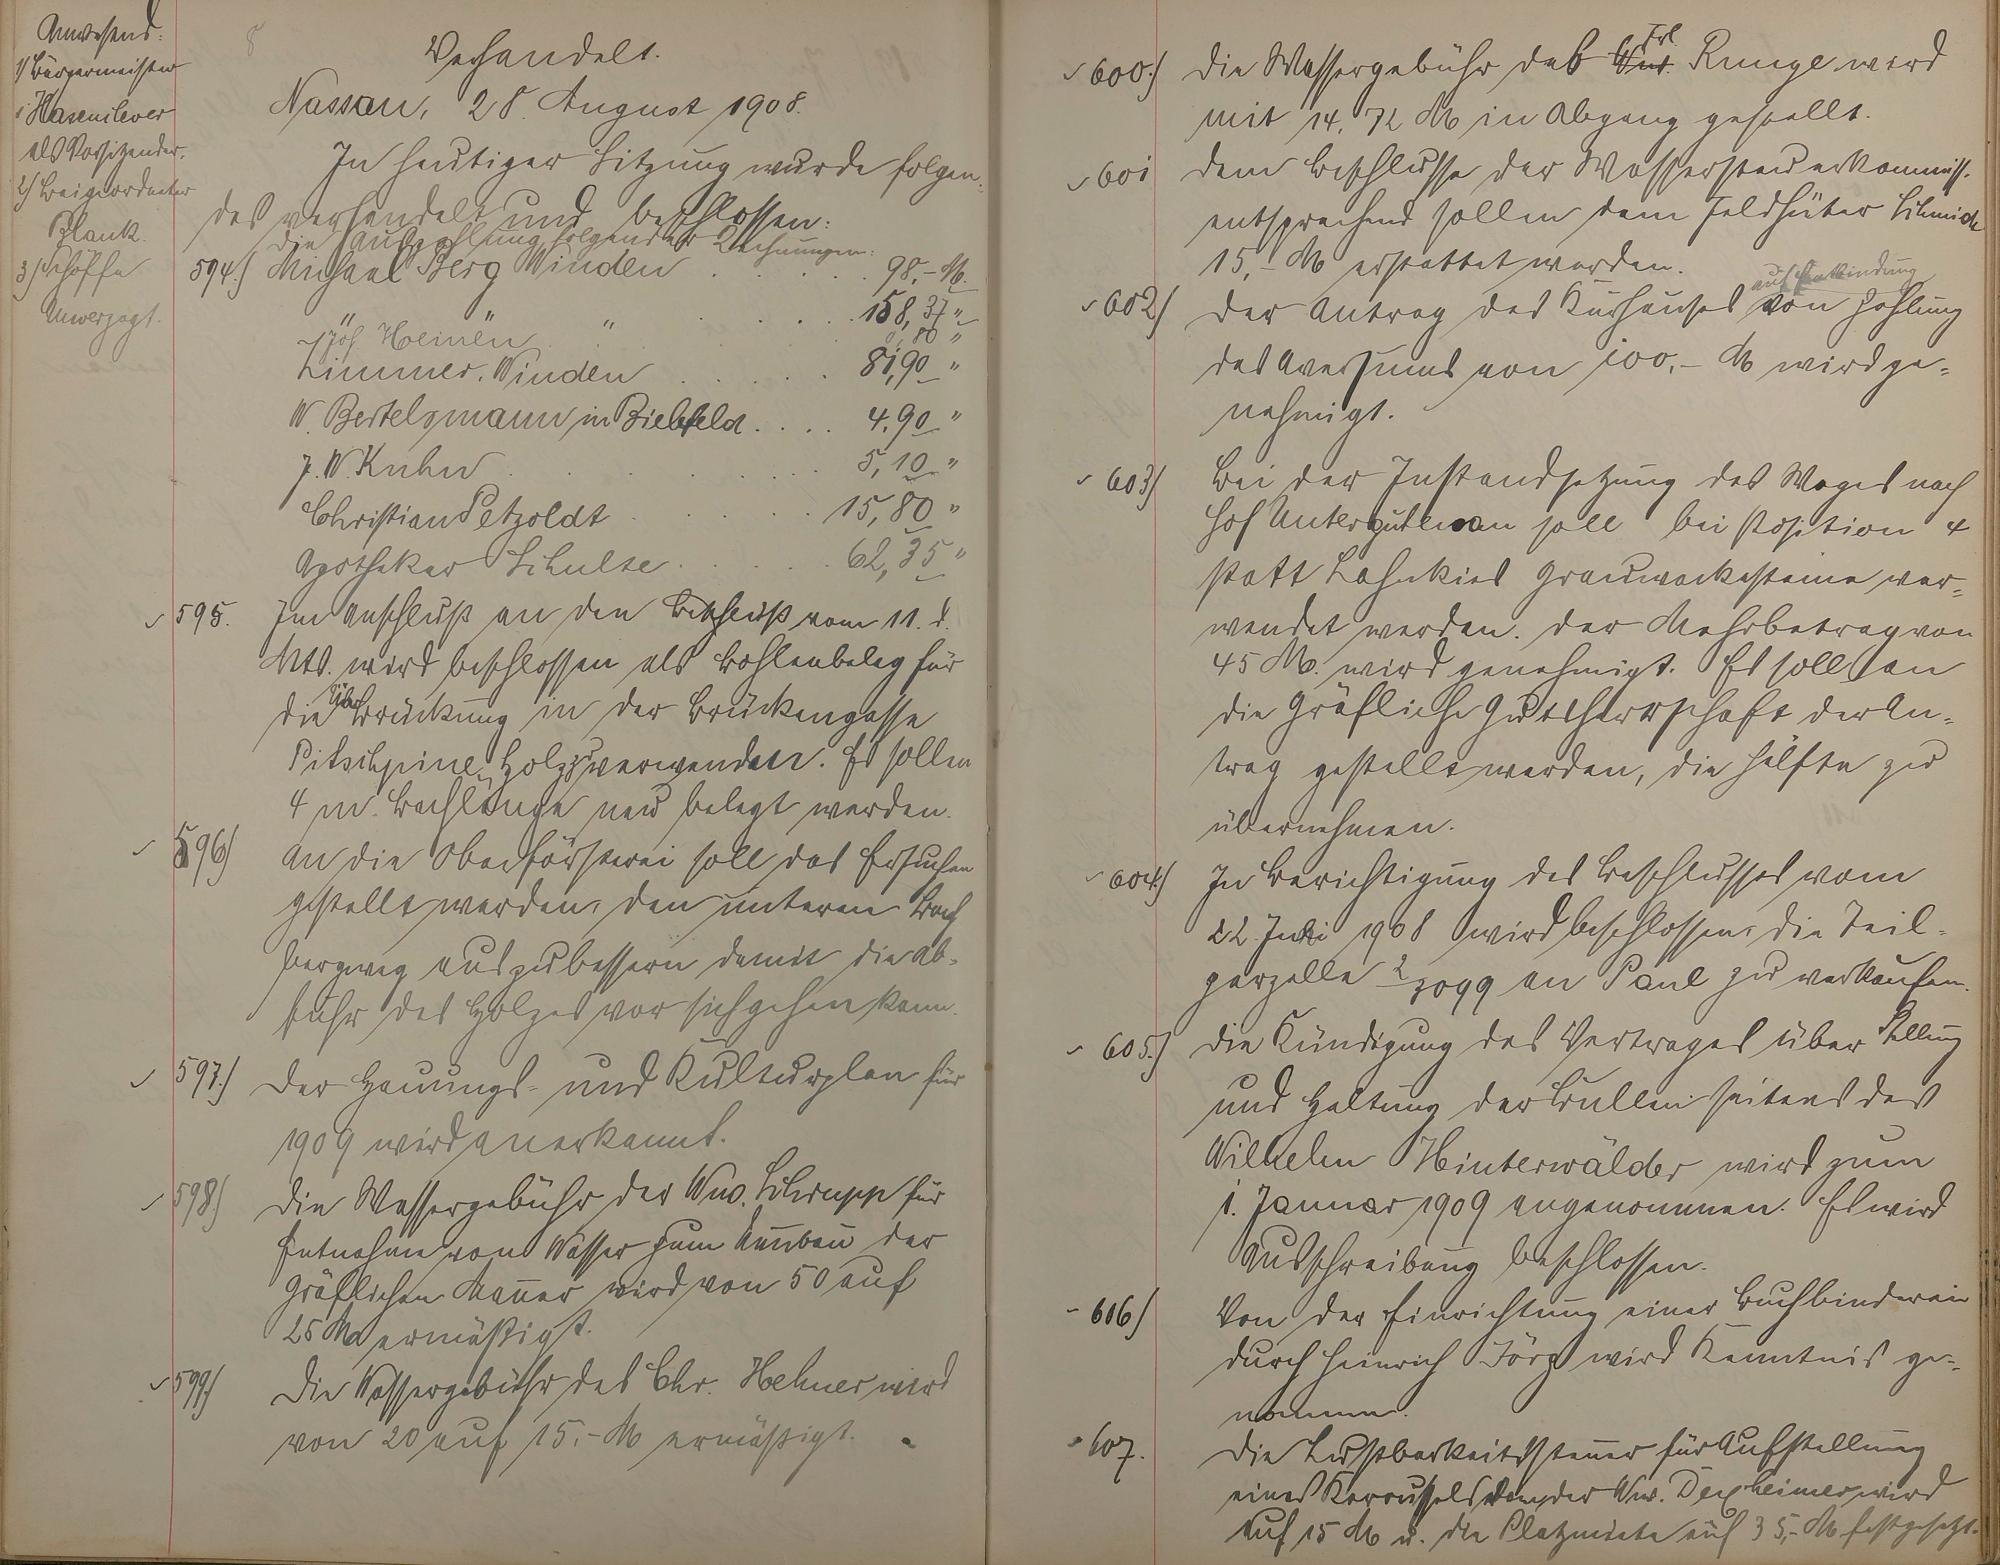 Anwesend:
1) Bürgermeister
Hasenclever
als Vorsitzender.
2) Beigeordneter
Blank.
3) Schöffe
Unverzagt.
Verhandelt.
Nassau, 28. August 1908.
In heutiger Sitzung wurde folgen-
des verhandelt und beschlossen:
die Auszahlung folgender Rechnungen:
594.) Michael Berg Winden . . . . . 98,- M.
" " " . . . . 158,37 "
Jos. Heinen . . . ,80 "
Zimmer, Winden . . . . . 81,90 "
W. Bertelsmann in Bielefeld . . . . 4,90 "
J. W. Kuhn . . . . . 5,10 "
Christian Petzoldt . . . . 15,80 "
Apotheker Schulze . . . . . 62,35 "
595. Im Anschluß an den Beschluß vom 11. d.
Mts. wird beschlossen als Bohlenbelag für
die Überbrückung in der Brückengasse
Pitschpine Holz zu verwenden. Es sollen
4 m. Bachlänge neu belegt werden.
596) An die Oberförsterei soll das Ersuchen
gestellt werden, den unteren Bach
bergweg auszubessern damit die Ab-
fuhr des Holzes vor sich gehen kann.
597.) Der Hauungs- und Kulturplan für
1909 wird anerkannt.
598.) Die Wassergebühr der Ww. Schrupp für
Entnahme von Wasser zum Neubau der
Gräflichen Mauer wird von 50 auf
25 M ermäßigt.
599) Die Wassergebühr des Chr. Hehner wird
von 20 auf 15,- M ermäßigt.
600.) Die Wassergebühr des Frl. Runge wird
mit 14,72 M in Abgang gestellt.
601 Dem Beschlusse der Wassersteuerkommiss.
entsprechend sollen dem Feldhüter Schmidt
15,- M erstattet werden.
auf Entbindung
602) Der Antrag des Kurhauses von Zahlung
des Aversums von 100,- M wird ge-
nehmigt.
603) Bei der Instandsetzung des Weges nach
Hof Untergutenau soll bei Position 4
statt Lahnkies Grauwackesteine ver-
wendet werden. Der Mehrbetrag von
45 M. wird genehmigt. Es soll an
die Gräfliche Gutsherrschaft der An-
trag gestellt werden, die Hälfte zu
übernehmen.
604.) In Berichtigung des Beschlusses vom
22. Juli 1908 wird beschlossen, die Teil-
parzelle 2/3099 an Paul zu verkaufen.
605.) Die Kündigung des Vertrages über Stellung
und Haltung der Bullen seitens des
Wilhelm Hinterwälder wird zum
1. Januar 1909 angenommen. Es wird
Ausschreibung beschlossen.
606) Von der Einrichtung einer Buchbinderei
durch Heinrich Jörg wird Kenntnis ge-
nommen.
607. Die Lustbarkeitssteuer für Aufstellung
eines Karoussels von der Ww. Dexheimer wird
auf 15 M u. die Platzmiete auf 35,- M festgesetzt.